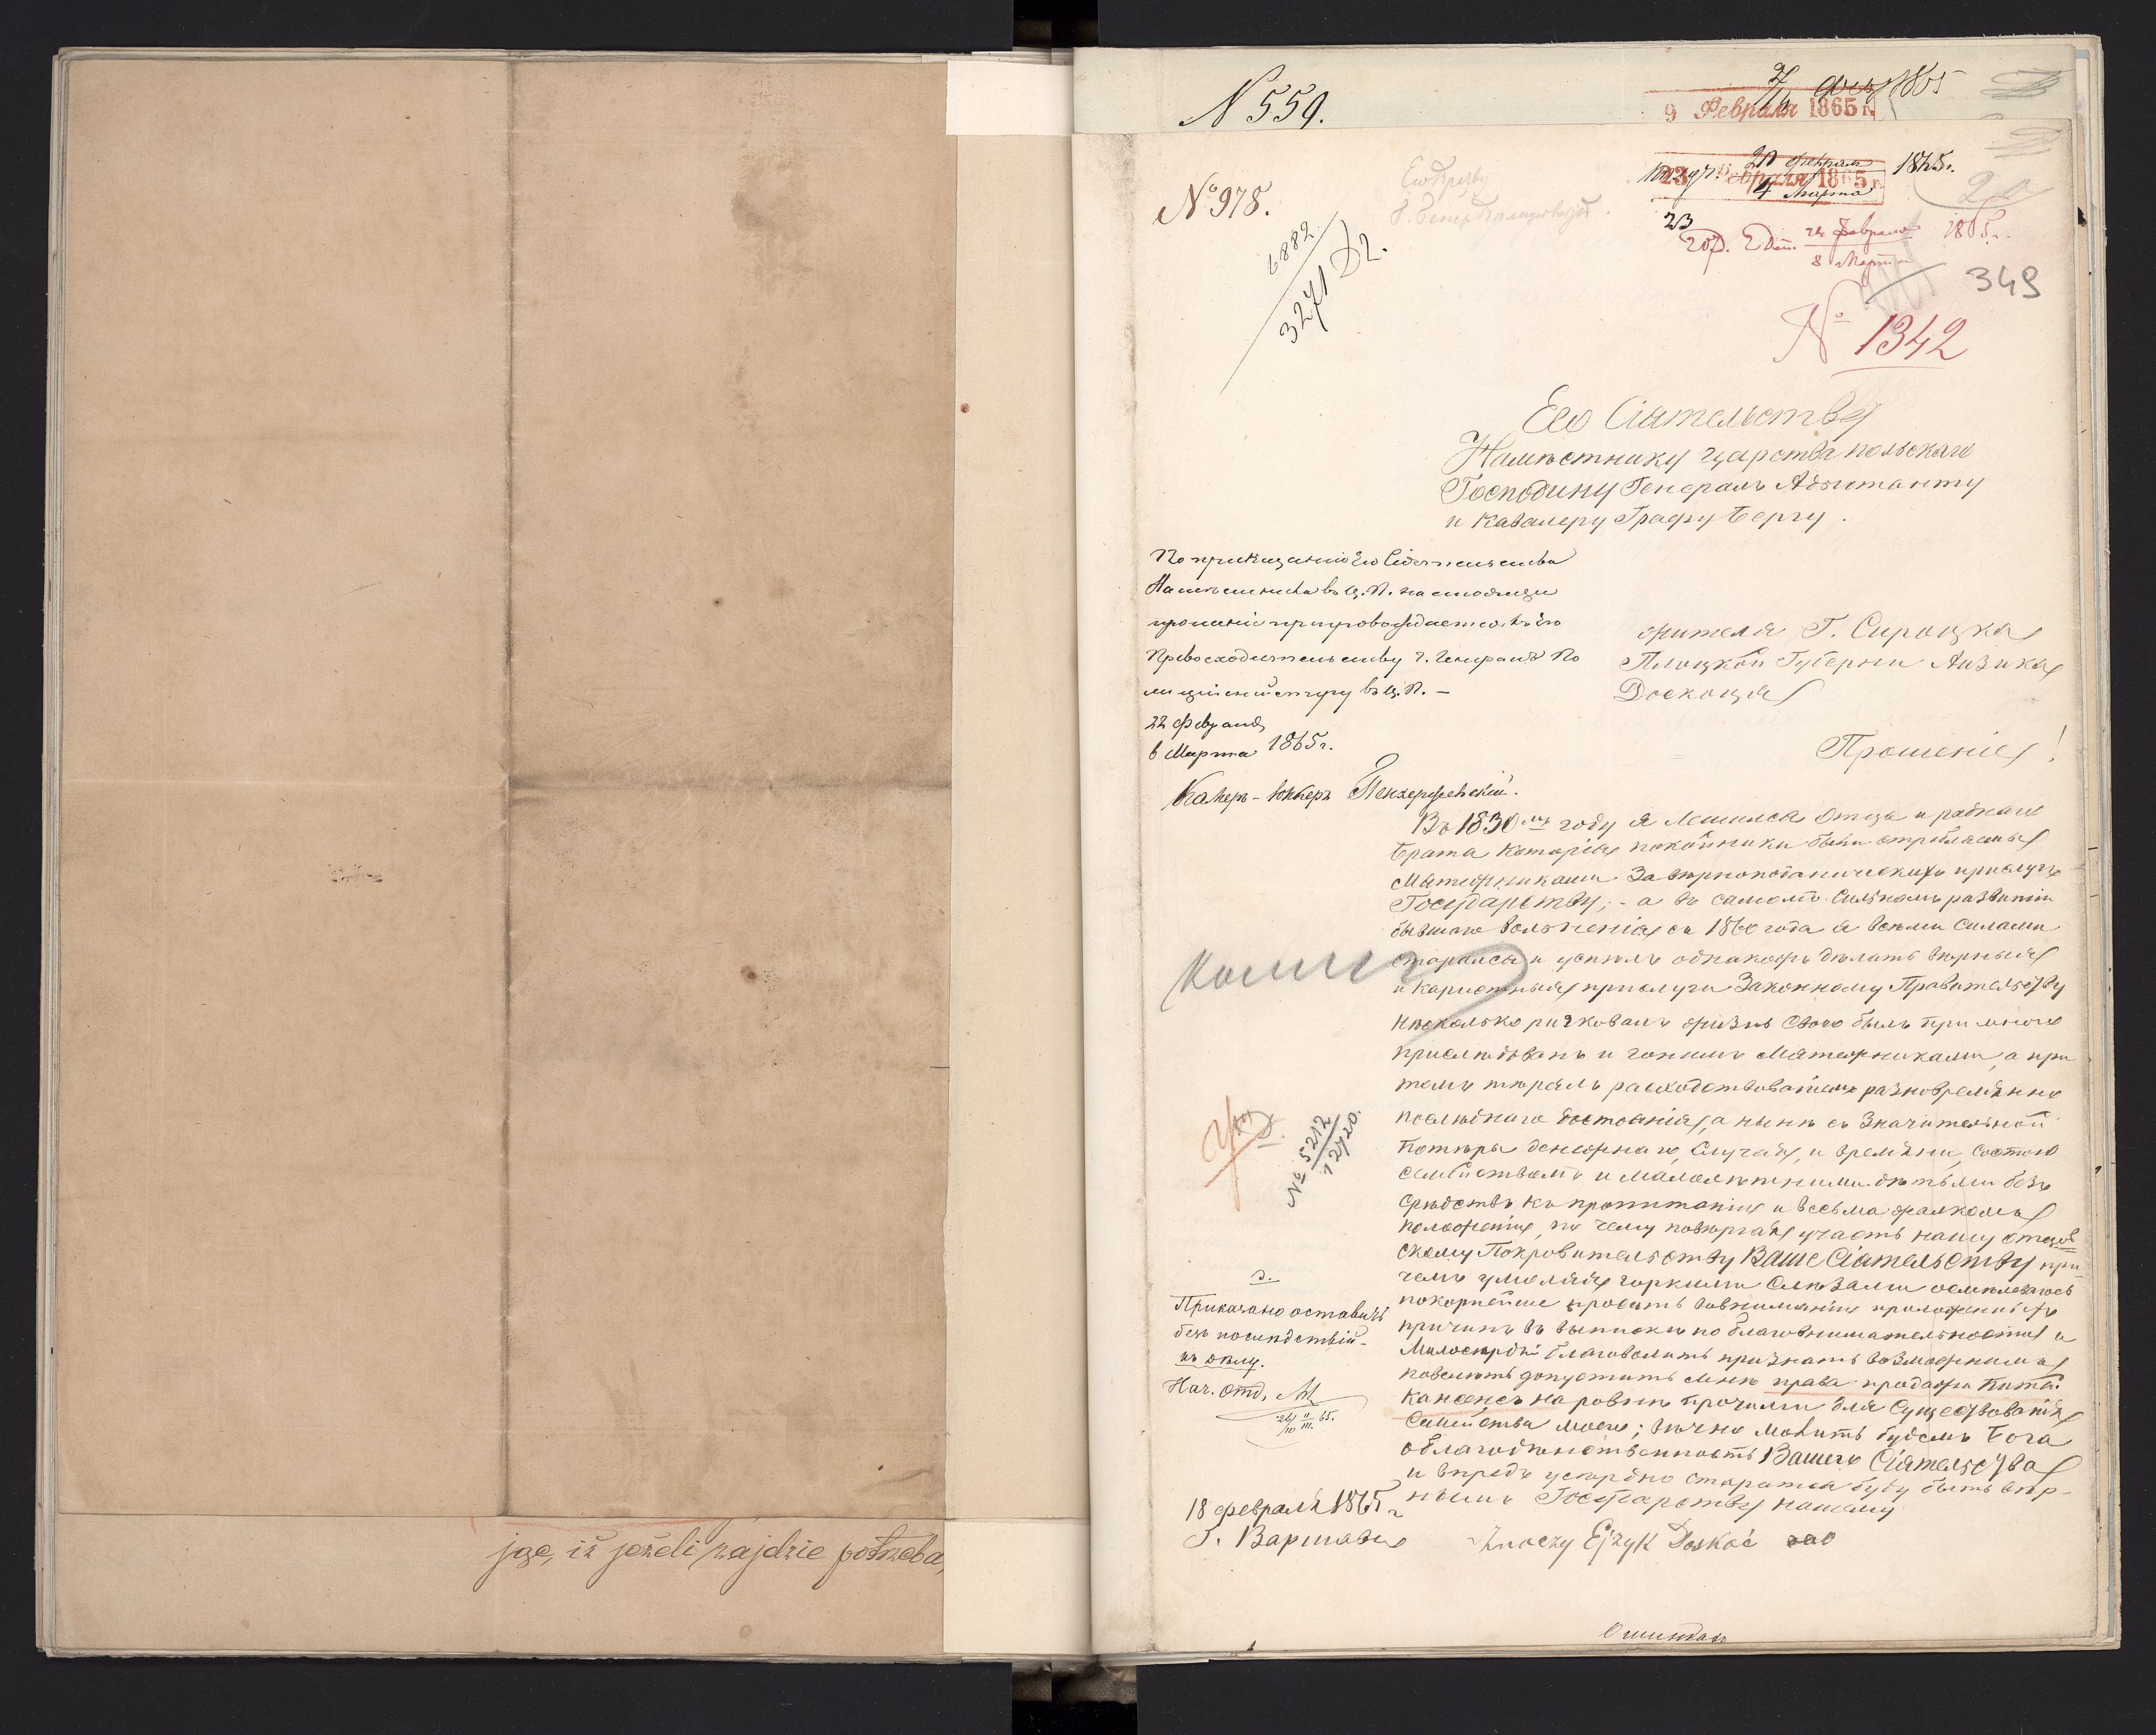 jąc, iż jeżeli zajdzie potrzeba,
N 559.
9 Февраля 1865 г.
№ 978.
6882
3271 Д2.
23 Февраля 1865 г.
20 февраля 1865.
4 марта
23
24 Февраля 1865 г.
8 Марта
349
№ 1342
Его Сіятельству
Намѣстнику царства польскаго
Господину Генералъ Адъютанту
и Кавалеру Графу Бергу.
По приказанію Его Сіятельства
Намѣстника въ Ц. П. настоящее
прошеніе препровождается къ Его
Превосходительству г. Генералъ По
лиціймейстеру въ Ц. П. —
22 февраля
6 Марта 1865 г.
Камеръ-Юнкеръ
жителя Г. Сироцка
Плоцкой Губерни Айзика
Доскоца
Прошеніе!
Въ 1830мъ году я лешился отца и роднаго
брата каторіе покойники были
Мятежниками за вѣрноподаническихъ прислугъ
Государству; - а въ самомъ сильномъ развитіи
бывшаго волненія съ 1860 года я всѣми силами
старался и успѣлъ однакожъ дѣлать вѣрныя
и карыстныя прислуги Законному Правительству
нѣсколько рызковалъ жизнъ свою былъ при много
прислѣдованъ и гонимъ Мятежниками, а при
томъ разновремѣнно
послѣднаго достоянія, а нынѣ съ Значительной
потѣры денежнаго, Случаю, и времѣни, состою
семѣйствомъ и малолѣтными дѣтьми безъ
срѣдствъ къ пропитанію и весьма жалкомъ
положенію, по чему повѣргаю участь нашу отцов
скому Покровительству Ваше Сіятельству при
чемъ умоляю горкими Слѣзами осмѣливаюсь
покорнѣйше просить вовниманію приложенныхъ
причинъ въ выписки по благовнимательностію и
Милосердій благоволить признать возможнимъ
повелѣть допустить мнѣ права продажи
на ровнѣ прочими для Существованія
Семѣйства моего; вѣчно молить будемъ Бога
облагодѣнственность Вашего Сіятельства
и впредъ усердно старатся буду быть вѣр-
нымъ Государству нашему
Копія
№ 5212
12720.
Приказано оставить
безъ послѣдствій.
къ дѣлу.
Нач. отд.
24/II 65.
18 февраля 1865 г.
Г. Варшава
Ejzyk Doskoć